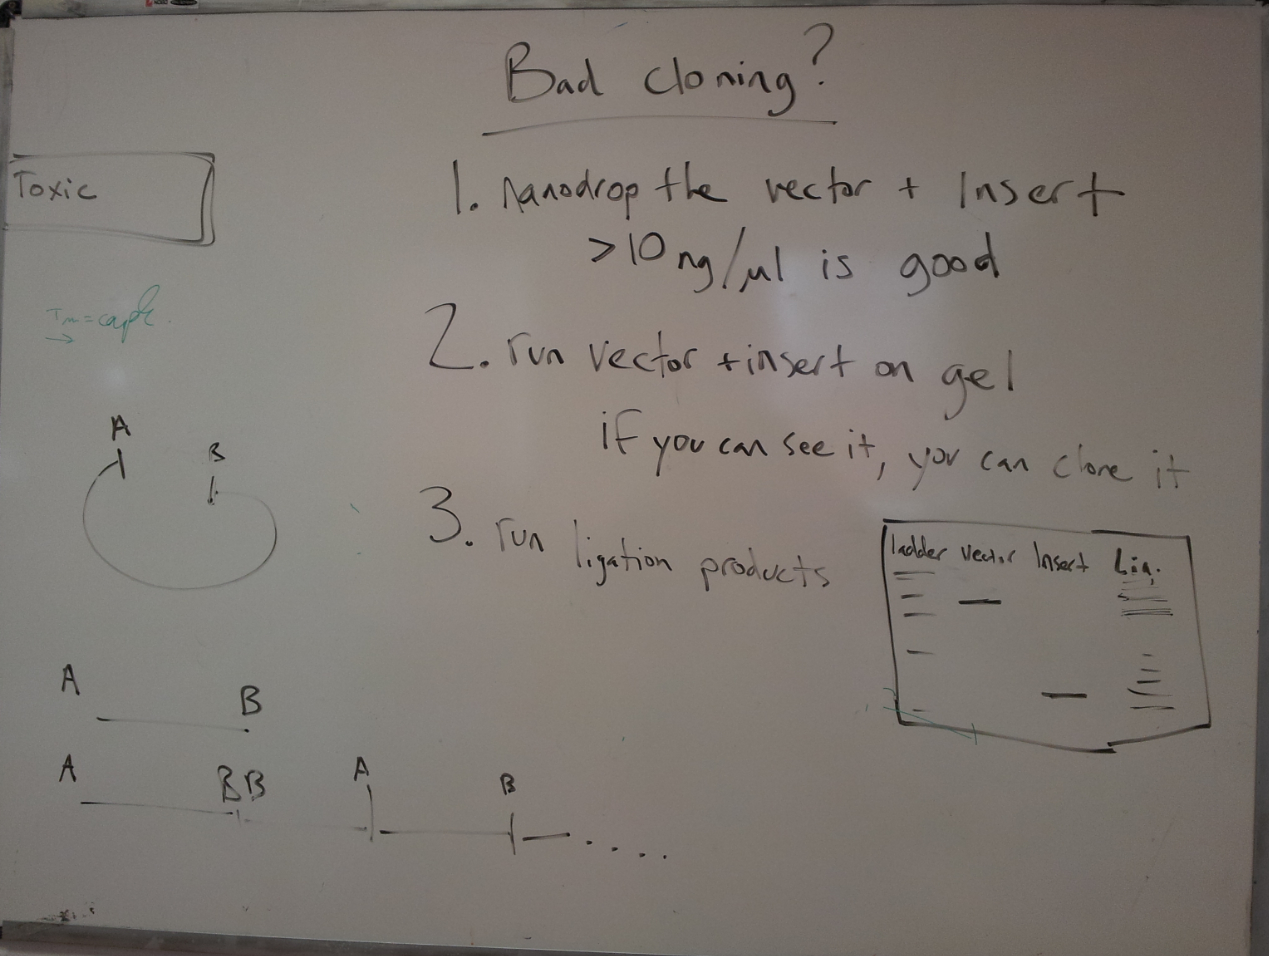 Bad cloning?
1. Nanodrop the vector + Insert
>10 ng/µl is good
2. run vector + insert on gel
if you can see it, you can clone it
3. run ligation products
ladder vector Insert Lig.
Toxic
A
B
A B
A BB A B .....